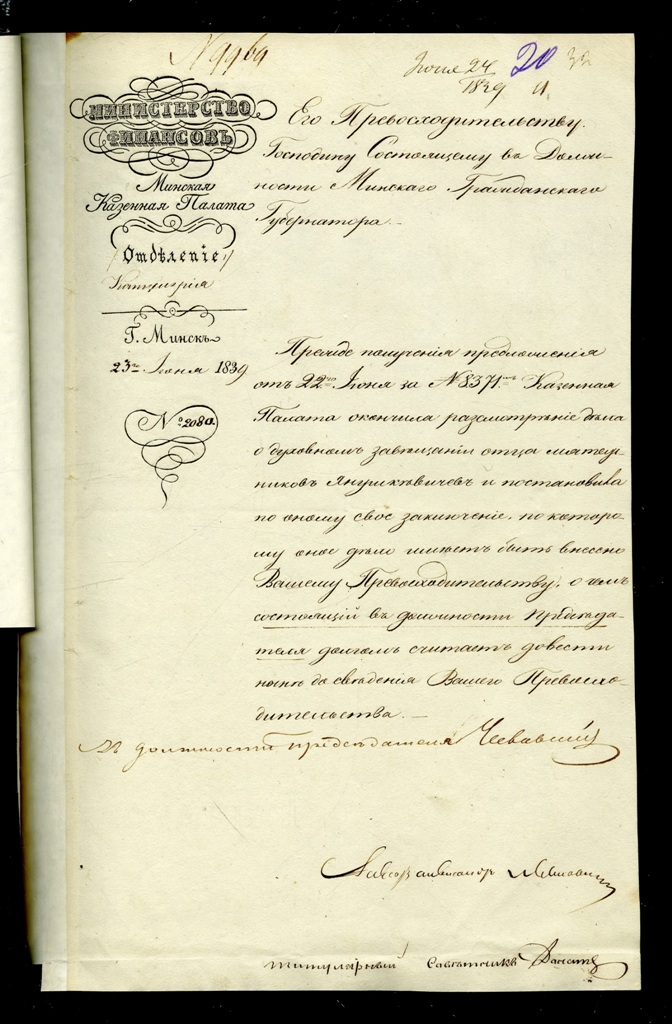 N 9969
Июня 24 1839
20
МИНИСТЕРСТВО
ФИНАНСОВЪ
Минская
Казенная Палата
Отдѣленіе
Г. Минскъ
23го Июня 1839
№ 2080.
Его Превосходительству
Господину Состоящему въ Долж-
ности Минскаго Гражданскаго
Губернатора.
Прежде полученія предложенія
отъ 22го Июня за № 8371мъ Казенная
Палата окончила разсмотрѣніе дѣла
о духовномъ завѣщаніи отца
Янушкевичевъ и постановила
по оному свое заключеніе, по которо-
му оное дѣло можетъ быть внесено
Вашему Превосходительству; о чемъ
состоящій въ должности Предсѣда-
теля долгомъ считаетъ довести
до свѣденія Вашего Превосхо-
дительства.
Въ должности Предсѣдателя
Александръ
Титулярный Совѣтникъ